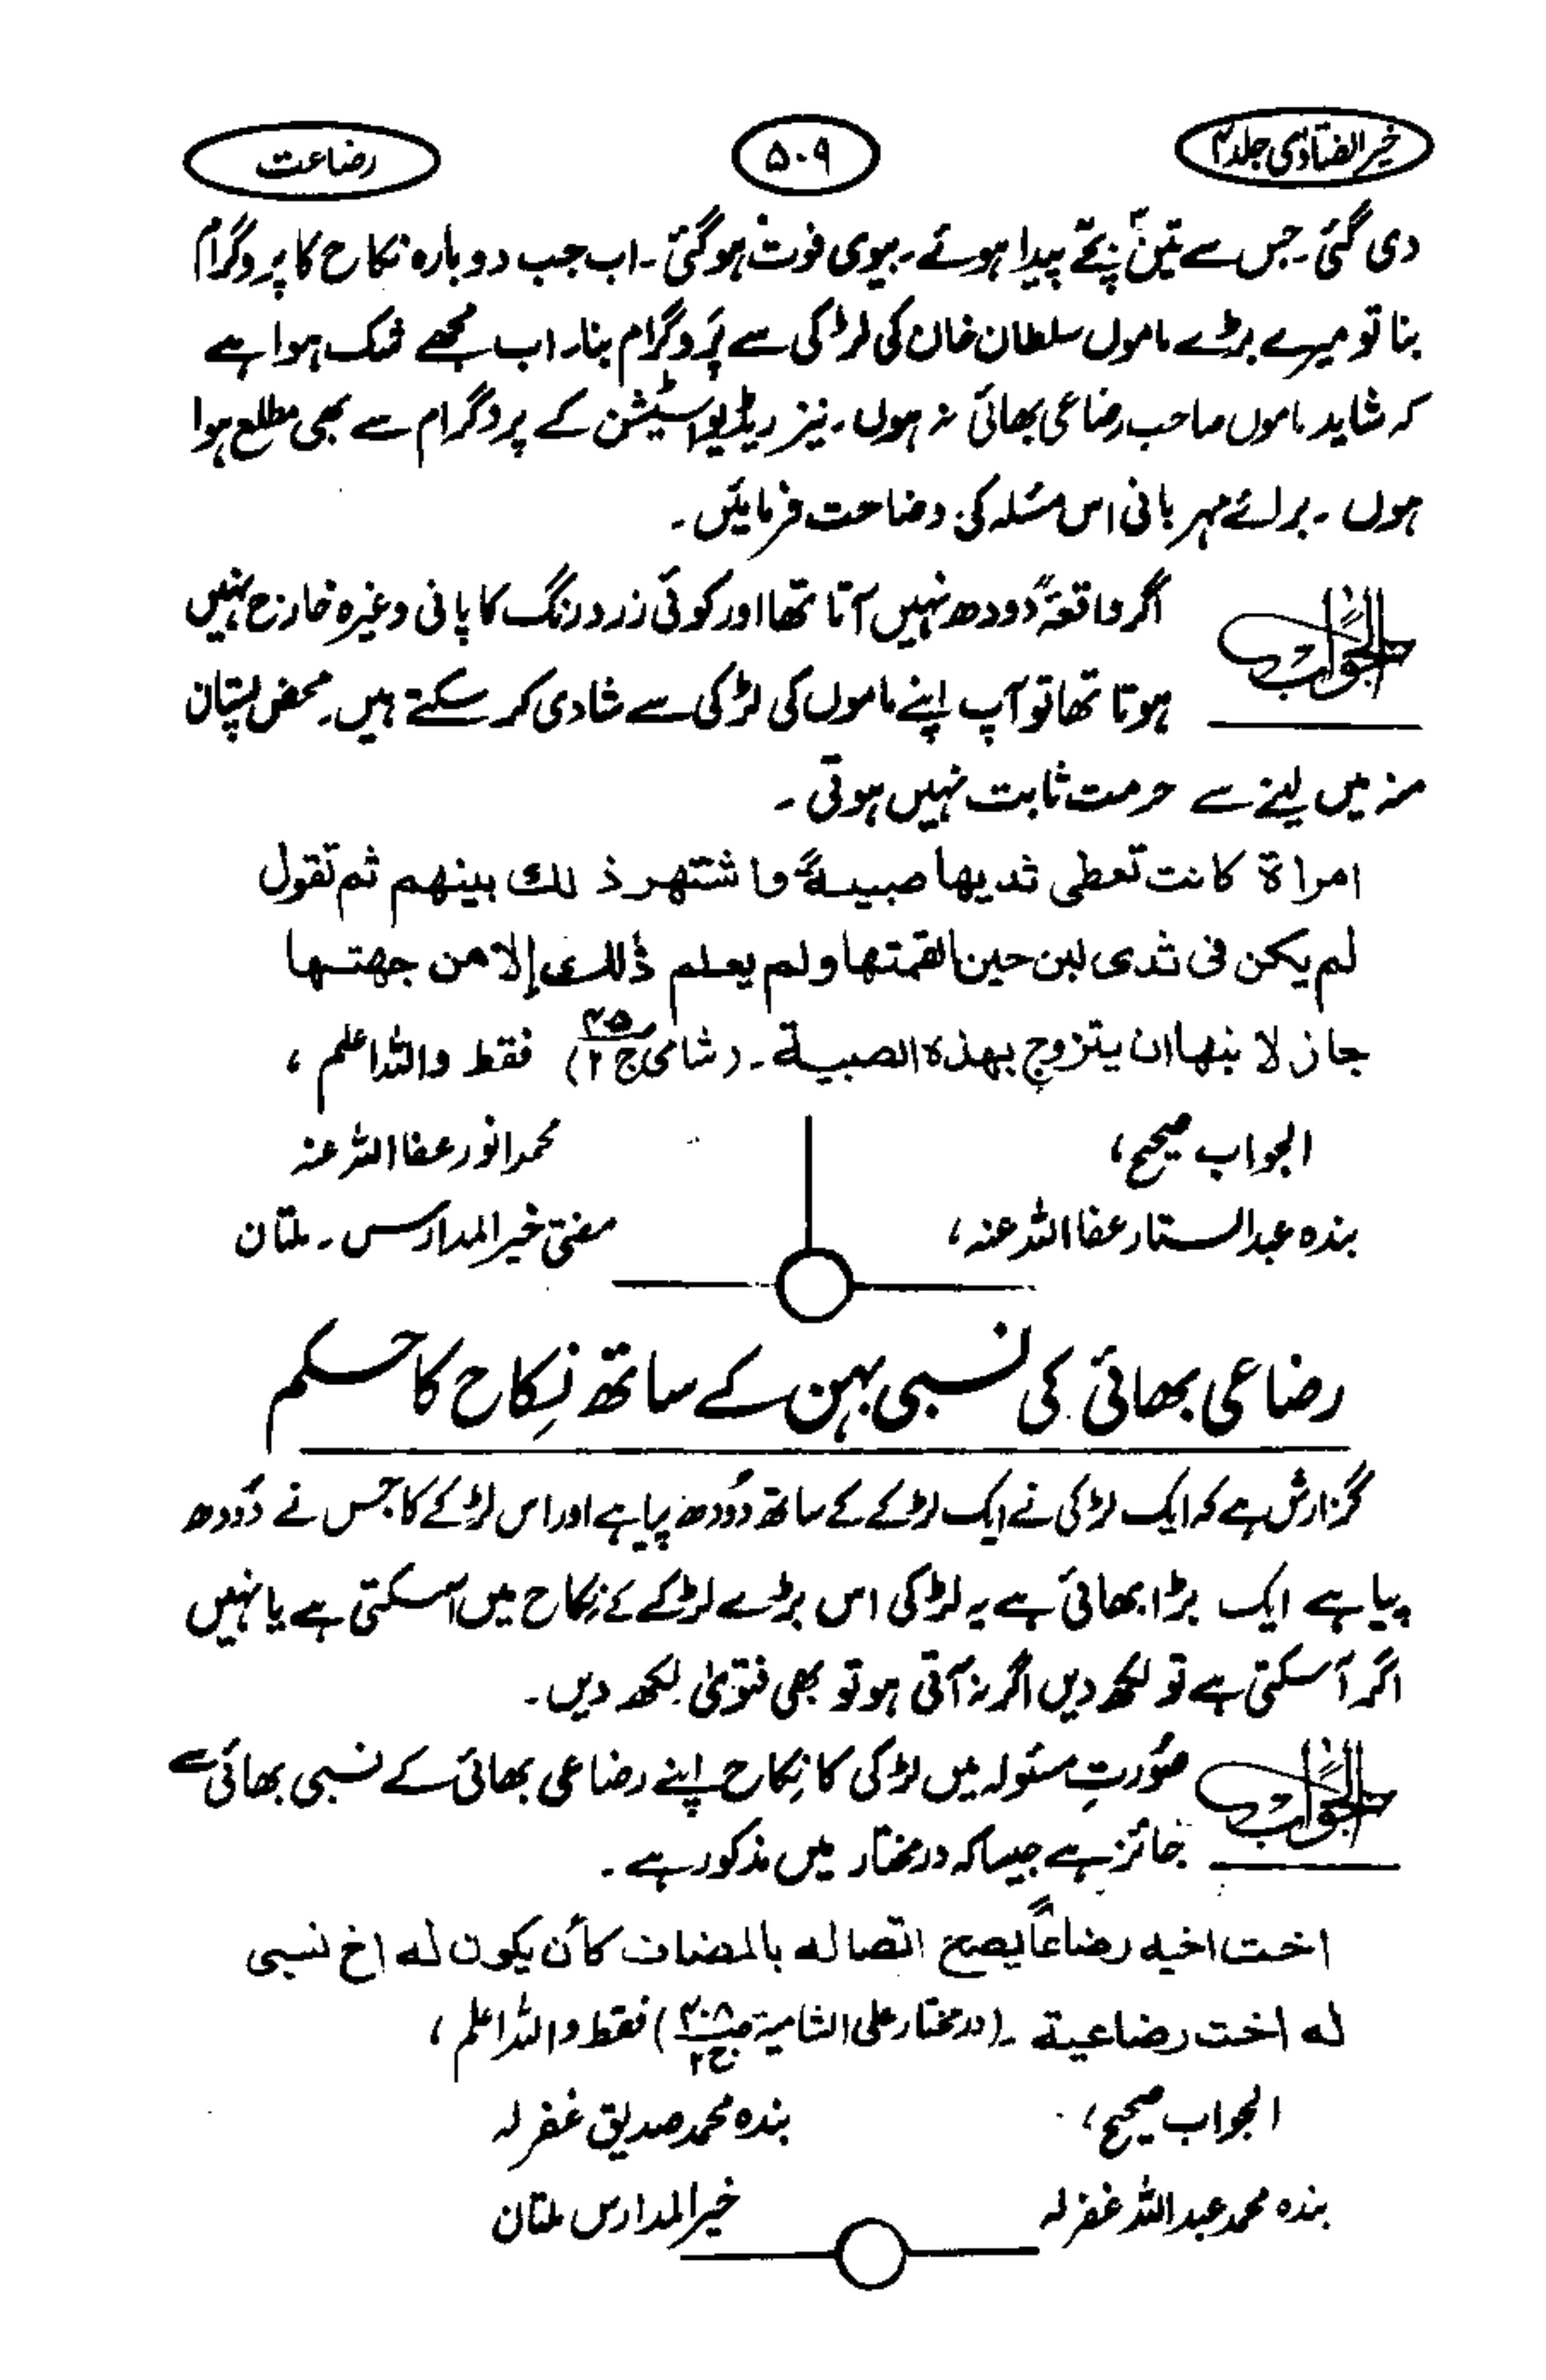 خیر الفتاویٰ جلد ۴
۵۰۹
رضاعت
دی گئی۔ جس سے تین بچے پیدا ہوئے۔ بیوی فوت ہوگئی۔ اب جب دوبارہ نکاح کا پروگرام
بنا تو میرے بڑے ماموں سلطان خان کی لڑکی سے پروگرام بنا۔ اب مجھے شک ہوا ہے
کہ شاید ماموں صاحب رضاعی بھائی نہ ہوں۔ نیز ریڈیو اسٹیشن کے پروگرام سے بھی مطلع ہوا
ہوں ۔ برائے مہربانی اس مسئلہ کی وضاحت فرمائیں ۔
الجواب
اگر واقعۃً دودھ نہیں آتا تھا اور کوئی زرد رنگ کا پانی وغیرہ خارج نہیں
ہوتا تھا تو آپ اپنے ماموں کی لڑکی سے شادی کر سکتے ہیں۔ محض پستان
منہ میں لینے سے حرمت ثابت نہیں ہوتی ۔
امراة كانت تعطى ثديها صبيةً واشتهر ذلك بينهم ثم تقول
لم يكن فى ثدى لبن حين القمتها ولم يعلم ذٰلك إلا من جهتها
جاز لابنها ان يتزوج بهذه الصبية ۔ (شامی ج۲) فقط واللہ اعلم ،
الجواب صحیح ،
بندہ عبدالستار عفا اللہ عنہ ،
محمد انور عفا اللہ عنہ
مفتی خیر المدارس ۔ ملتان
رضاعی بھائی کی نسبی بہن کے ساتھ نِکاح کا حکم
گزارش ہے کہ ایک لڑکی نے ایک لڑکے کے ساتھ دُودھ پیا ہے اور اس لڑکے کا جس نے دُودھ
پیا ہے ایک بڑا بھائی ہے یہ لڑکی اس بڑے لڑکے کے نِکاح میں آسکتی ہے یا نہیں
اگر آسکتی ہے تو لکھ دیں اگر نہ آتی ہو تو بھی فتویٰ لکھ دیں ۔
الجواب
صُورتِ مسئولہ میں لڑکی کا نِکاح اپنے رضاعی بھائی کے نسبی بھائی سے
جائز ہے جیسا کہ درمختار میں مذکور ہے ۔
اخت اخيه رضاعاً يصح اتصاله بالمضاف كأن يكون له اخ نسبى
له اخت رضاعية ۔ (درمختار علی الشامیة ص۴۰۸ ج۲) فقط واللہ اعلم ،
الجواب صحیح ،
بندہ محمد عبداللہ غفرلہ
بندہ محمد صدیق غفرلہ
خیر المدارس ملتان